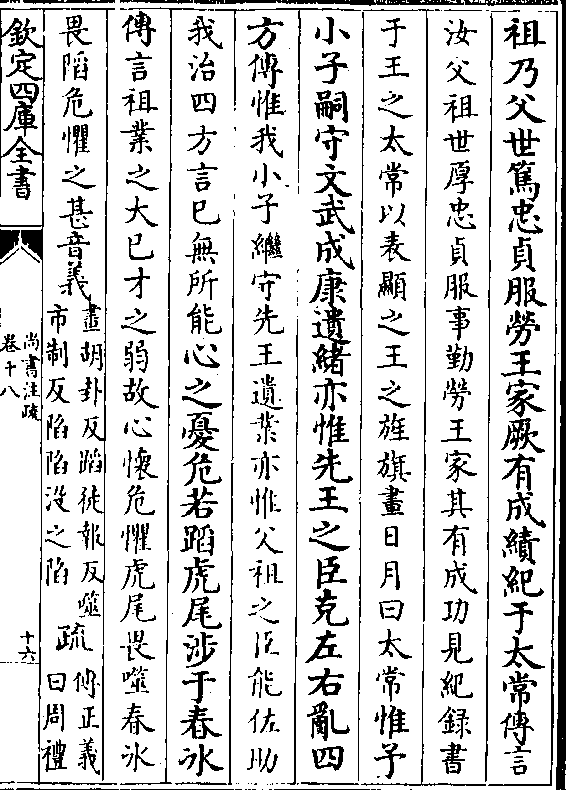 祖乃父世篤忠貞服勞王家厥有成績紀于太常傳言
汝父祖世厚忠貞服事勤勞王家其有成功見紀錄書
于王之太常以表顯之王之旌旗畫日月曰太常惟予
小子嗣守文武成康遺緒亦惟先王之臣克左右亂四
方傳惟我小子繼守先王遺業亦惟父祖之臣能佐助
我治四方言己無所能心之憂危若蹈虎尾涉于春氷
傳言祖業之大己才之弱故心懷危懼虎尾畏噬春氷
畏陷危懼之甚音義
畫胡卦反蹈徒報反噬
市制反陷陷没之陷
疏
傳正義
曰周禮
欽定四庫全書
尚書注疏
卷十八
十六